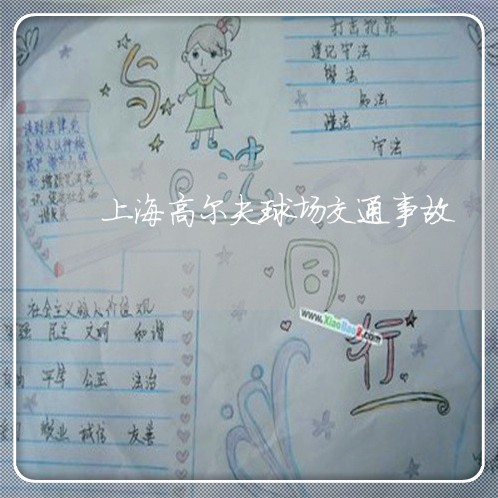 打击犯罪
遵记守法
法
知法
懂法
守法
与
法
谈到法律,总
会给人以神秘
上海高尔夫球场交通事故
同
www.XiaoBao8.com
行
社会主义核心价值观
强 民主 文明 和谐
由 平等 公正 法治
敬业 诚信 友善